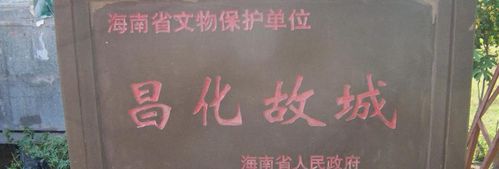 海南省文物保护单位
昌化故城
海南省人民政府